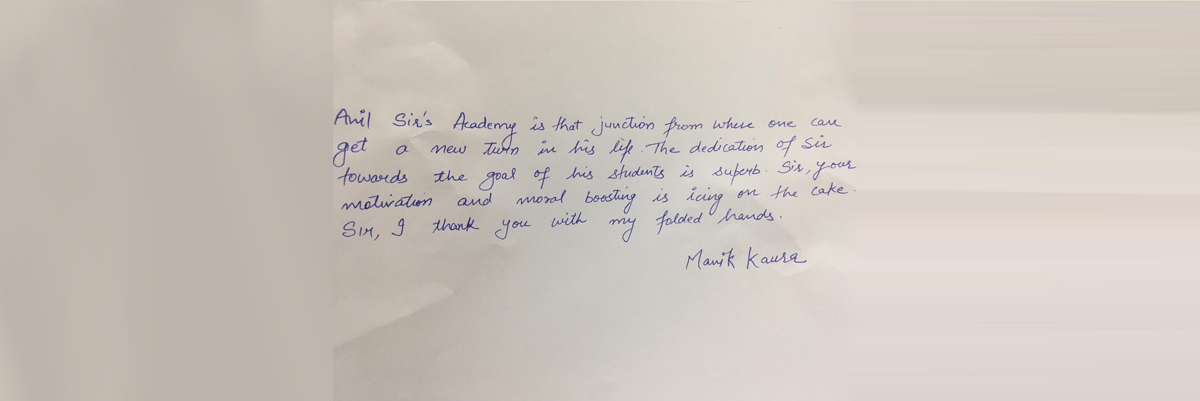 Anil Sir's Academy is that junction from where one can
get a new turn in his life. The dedication of Sir
towards the goal of his students is superb. Sir, your
motivation and moral boosting is icing on the cake.
Sir, I thank you with my folded hands.
Manik Kaura